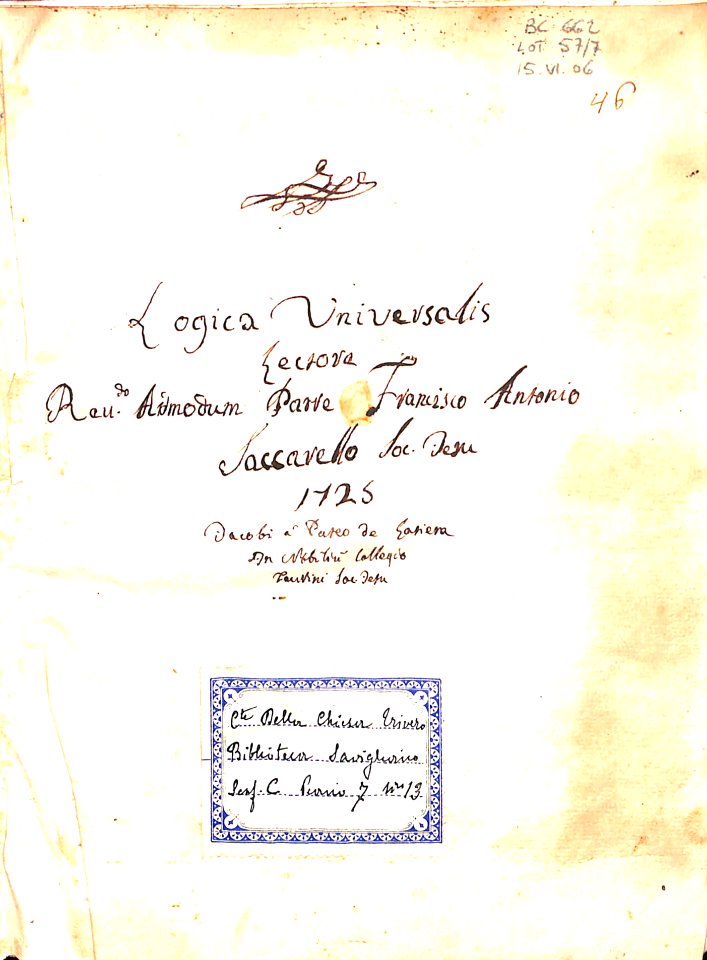 BC 662
LOT 57/7
15. VI. 06
46
Logica Universalis
Lectore
Reu.do Admodum Patre Francisco Antonio
Saccarello Soc. Jesu
1725
Jacobi a Puteo de
In Nobiliu Collegio
Soc Jesu
Cte Della Chiesa Trivero
Biblioteca Savigliano
Scaf. C Piano 7 No 13